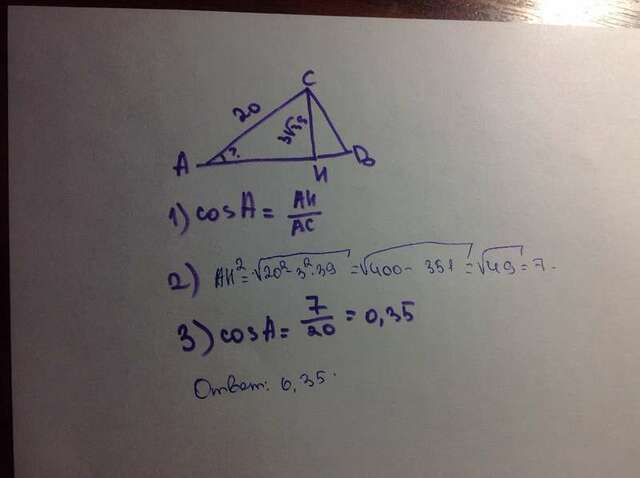 C
20
3√39
A
?
H
B
1) cosA = AH/AC
2) AH² = √20² - 3²·39 = √400 - 351 = √49 = 7.
3) cosA = 7/20 = 0,35
Ответ: 0,35.